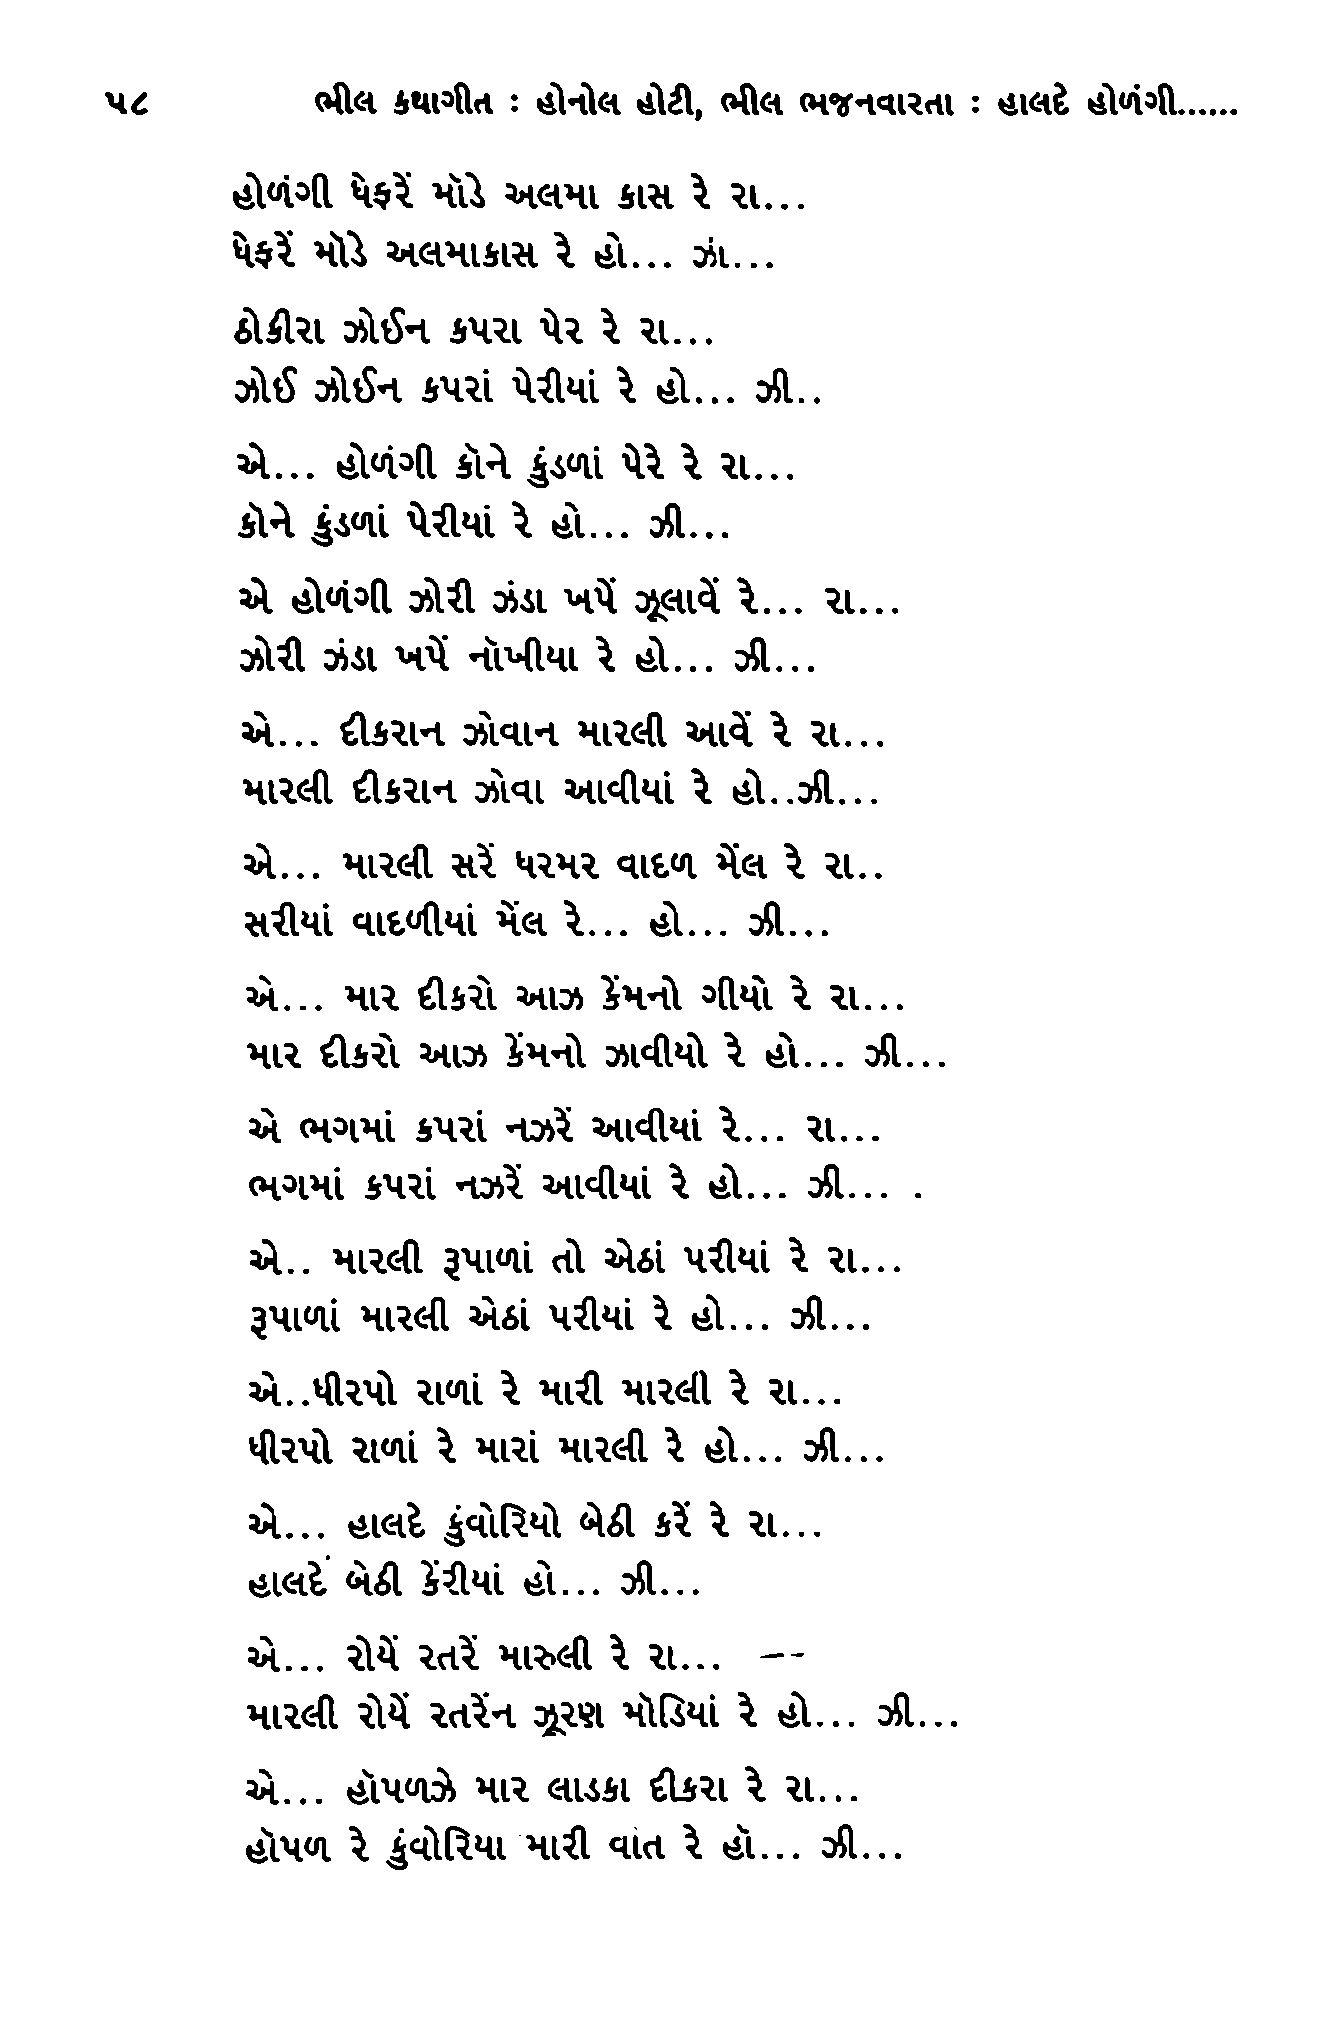 ૫૮ ભીલ કથાગીત : હોનોલ હોટી, ભીલ ભજનવારતા : હાલદે હોળંગી......
હોળંગી ધેફરેં મૉડે અલમા કાસ રે રા...
ધેફરેં મૉડે અલમાકાસ રે હો... ઝાં...
ઠોકીરા ઝોઈન કપરા પેર રે રા...
ઝોઈ ઝોઈન કપરાં પેરીયાં રે હો... ઝી..
એ... હોળંગી કૉને કુંડળાં પેરે રે રા...
કૉને કુંડળાં પેરીયાં રે હો... ઝી...
એ હોળંગી ઝોરી ઝંડા ખપેં ઝૂલાવેં રે... રા...
ઝોરી ઝંડા ખપેં નૉખીયા રે હો... ઝી...
એ... દીકરાન ઝોવાન મારલી આવેં રે રા...
મારલી દીકરાન ઝોવા આવીયાં રે હો..ઝી...
એ... મારલી સરેં ધરમર વાદળ મેંલ રે રા..
સરીયાં વાદળીયાં મેંલ રે... હો... ઝી...
એ... માર દીકરો આઝ કેંમનો ગીયો રે રા...
માર દીકરો આઝ કેંમનો ઝાવીયો રે હો... ઝી...
એ ભગમાં કપરાં નઝરેં આવીયાં રે... રા...
ભગમાં કપરાં નઝરેં આવીયાં રે હો... ઝી... .
એ.. મારલી રૂપાળાં તો એઠાં પરીયાં રે રા...
રૂપાળાં મારલી એઠાં પરીયાં રે હો... ઝી...
એ..ધીરપો રાળાં રે મારી મારલી રે રા...
ધીરપો રાળાં રે મારાં મારલી રે હો... ઝી...
એ... હાલદે કુંવોરિયો બેઠી કરેં રે રા...
હાલદેં બેઠી કેંરીયાં હો... ઝી...
એ... રોયેં રતરેં મારુલી રે રા... --
મારલી રોયેં રતરેંન ઝૂરણ મૉડિયાં રે હો... ઝી...
એ... હૉપળઝે માર લાડકા દીકરા રે રા...
હૉપળ રે કુંવોરિયા મારી વાંત રે હૉ... ઝી...